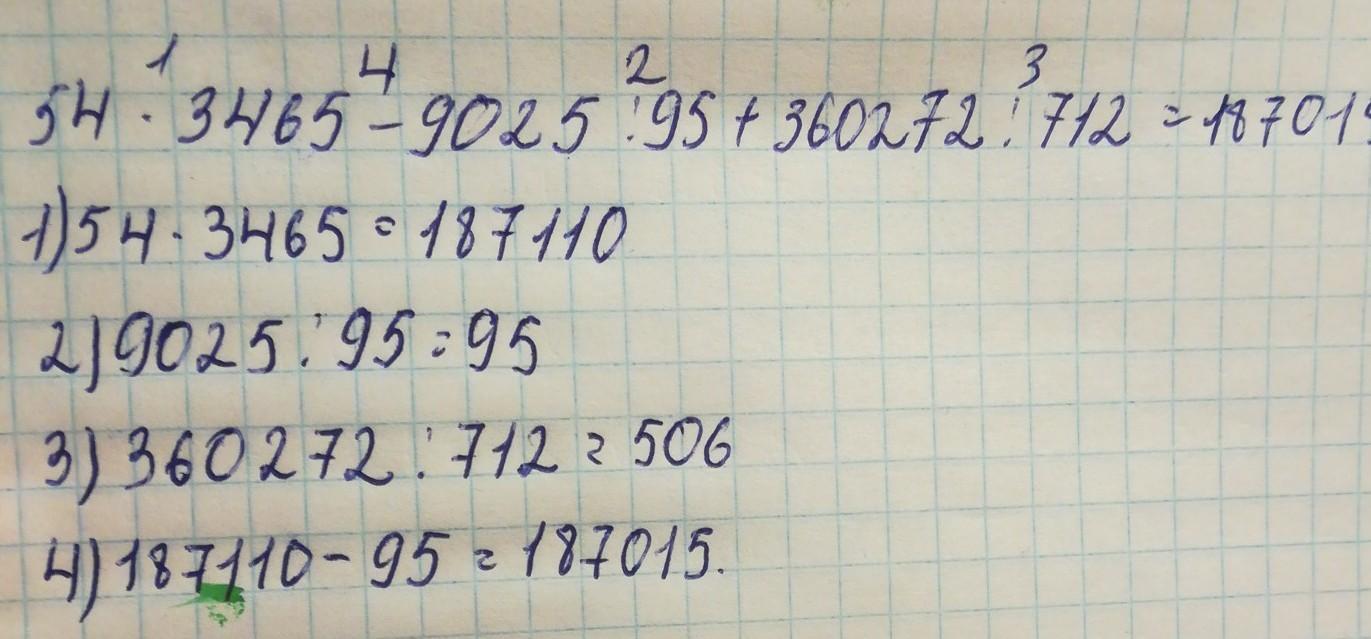 1 4 2 3
54 · 3465 - 9025 : 95 + 360272 : 712 = 187015
1) 54 · 3465 = 187110
2) 9025 : 95 = 95
3) 360272 : 712 = 506
4) 187110 - 95 = 187015.